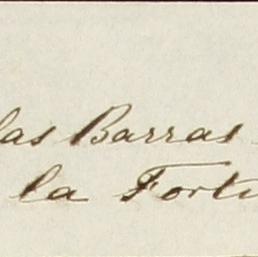 las Barras
la Fortu